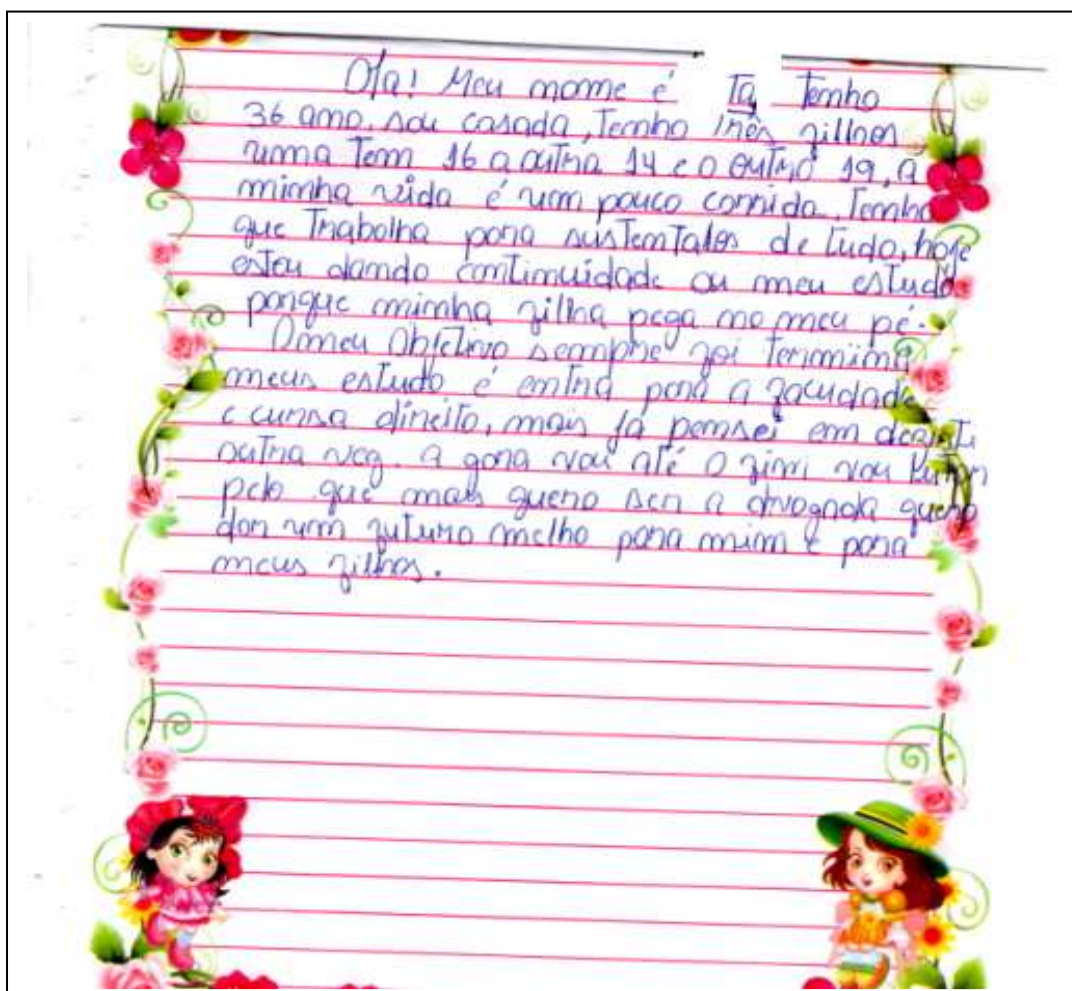 Ola! Meu nome é Ta, Tenho
36 ano, sou casada, Tenho Três filhos
uma Tem 16 a outra 14 e o outro 19, a
minha vida é um pouco corrida, Tenho
que Trabalha para sustentalos de tudo, hoje
estou dando continuidade ou meu estudo
porque minha filha pega no meu pé.
O meu Objetivo sempre foi Termina
meus estudo é entra para a facudade
e cursa direito, mais já pensei em desisti
outra vez. a gora vou até o fim vou lutar
pelo que mais quero ser a dvogada quero
dar um futuro melho para mim e para
meus filhos.